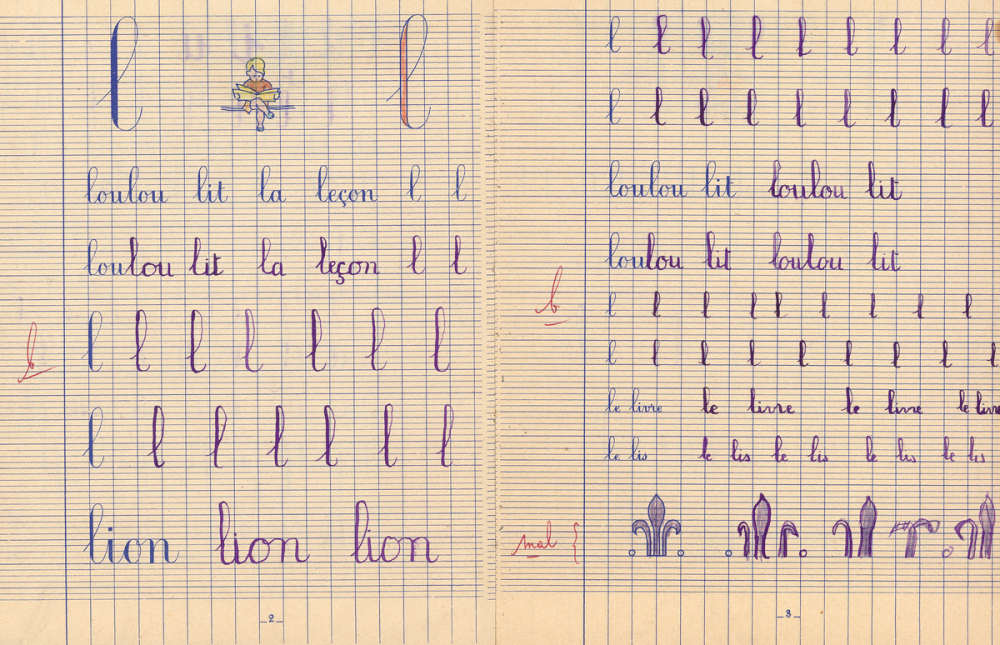 l l
loulou lit la leçon l l
loulou lit la leçon l l
b l l l l l l l
l l l l l l l
lion lion lion
2
l l l l l l l l l
l l l l l l l l l
loulou lit loulou lit
loulou lit loulou lit
b l l l l l l l l l
l l l l l l l l l
le livre le livre le livre le livre
le lis le lis le lis le lis le lis
mal {
3